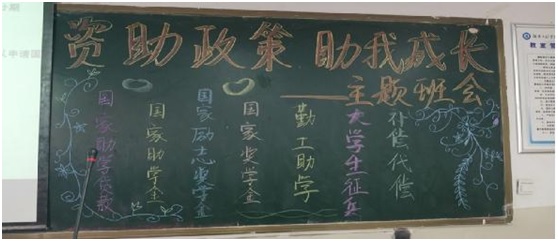 资助政策 助我成长
——主题班会
国家助学贷款
国家助学金
国家励志奖学金
国家奖学金
勤工助学
大学生征兵
补偿代偿